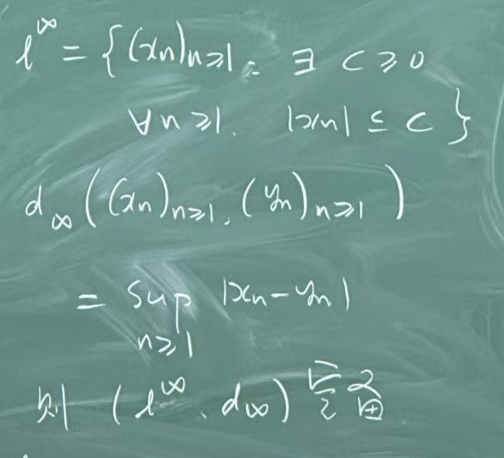 l^∞ = {(xn)n≥1: ∃ C≥0
∀n≥1. |xn| ≤ C}
d∞((xn)n≥1, (yn)n≥1)
= sup |xn-yn|
n≥1
则 (l^∞, d∞) 完备